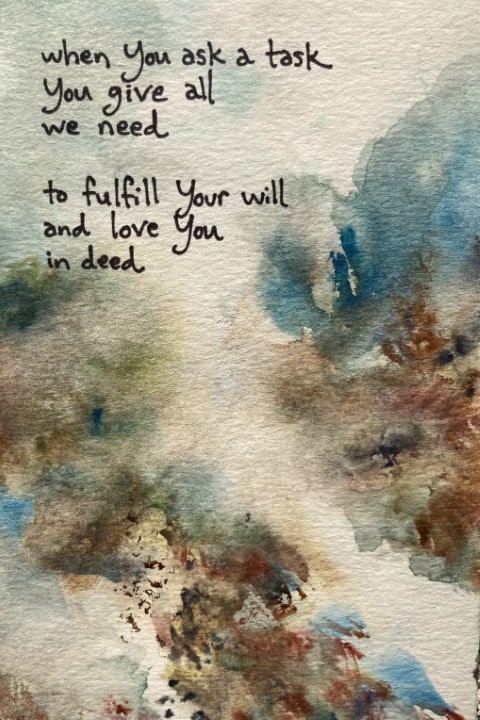 when You ask a task
You give all
we need
to fulfill Your will
and love You
in deed